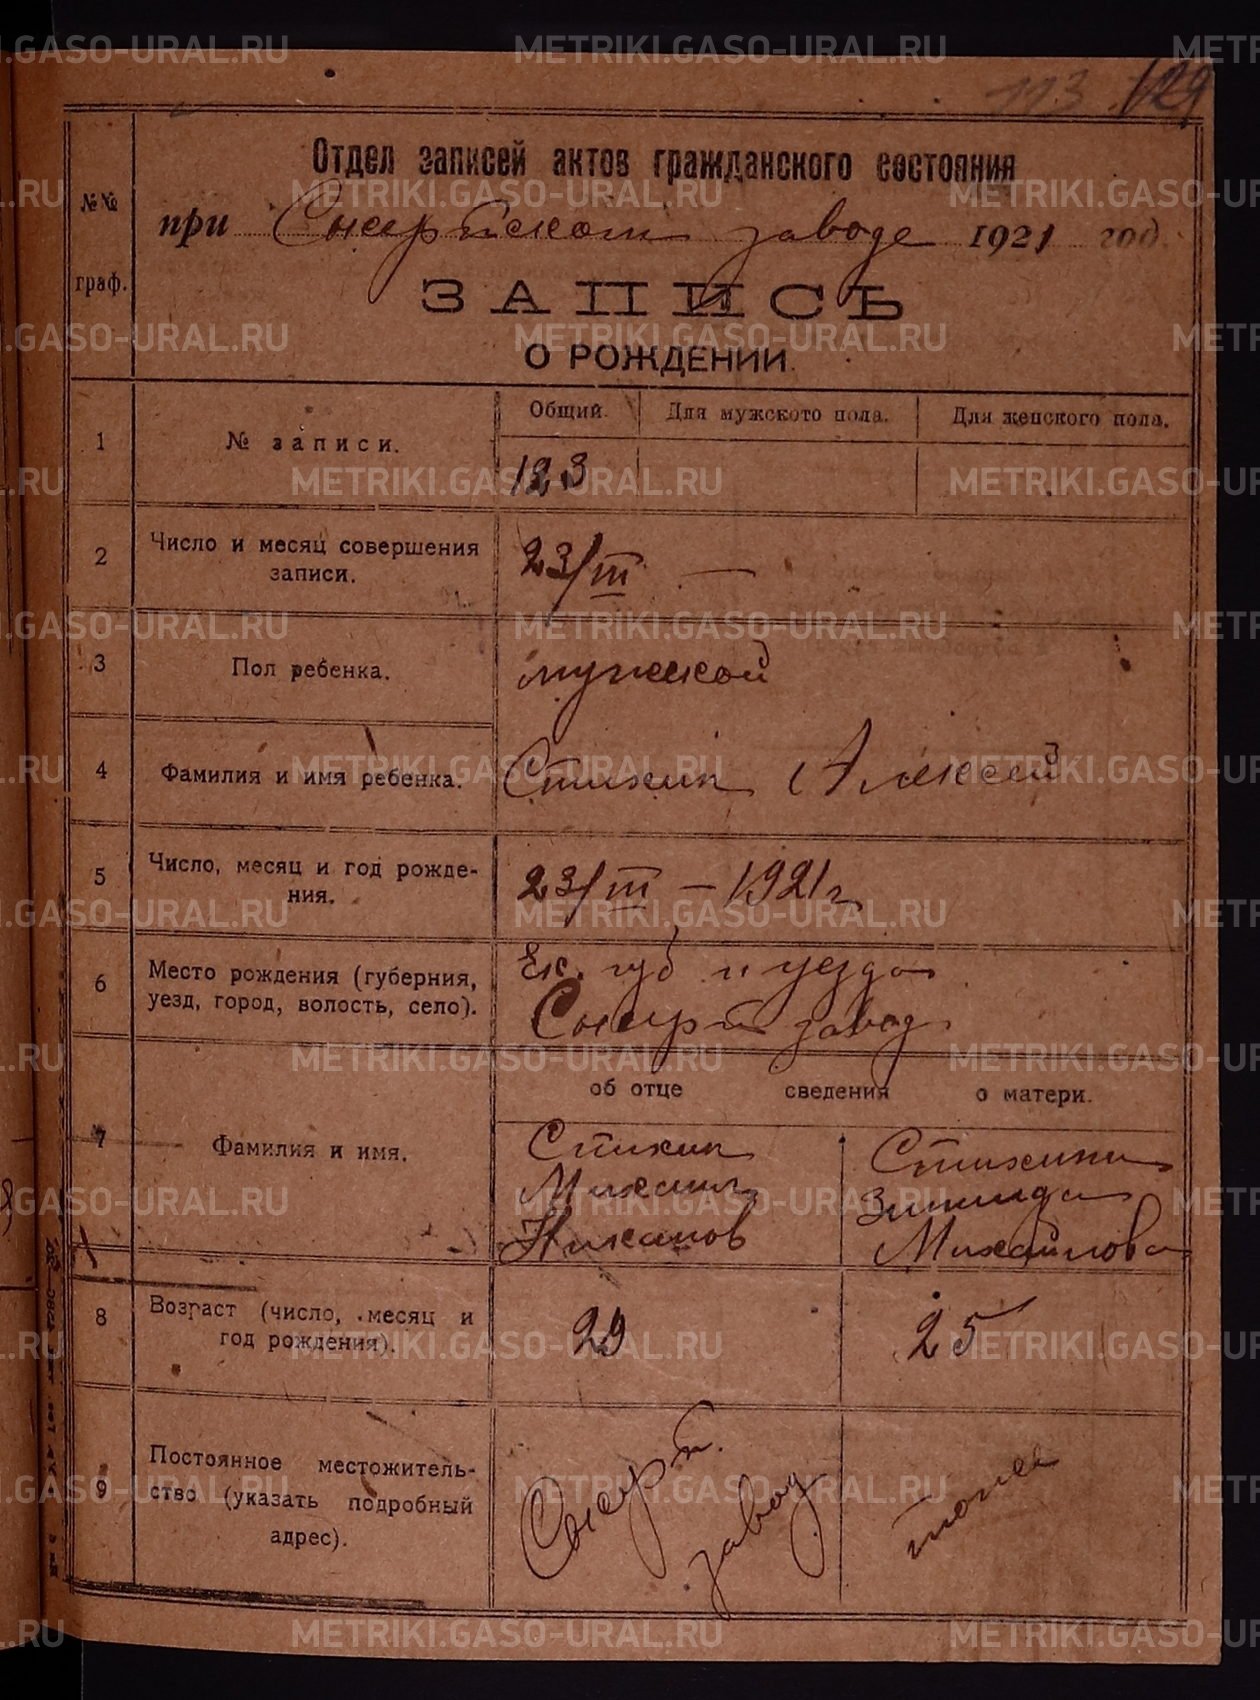 113 129
№№ граф.
Отдел записей актов гражданского состояния
при Сысертском заводе 1921 год.
ЗАПИСЬ
О РОЖДЕНИИ.
Общий. Для мужского пола. Для женского пола.
1 № записи. 123
2 Число и месяц совершения записи. 23/III —
3 Пол ребенка. мужской
4 Фамилия и имя ребенка. Стихин Алексей
5 Число, месяц и год рождения. 23/III — 1921 г.
6 Место рождения (губерния, уезд, город, волость, село). Ек. губ и уезда
Сысерт завод.
об отце сведения о матери.
7 Фамилия и имя. Стихин Стихина
Михаил Зинаида
Никанов Михайлова
8 Возраст (число, месяц и год рождения). 29 25
9 Постоянное местожительство (указать подробный адрес). Сысерт. завод тоже
METRIKI.GASO-URAL.RU